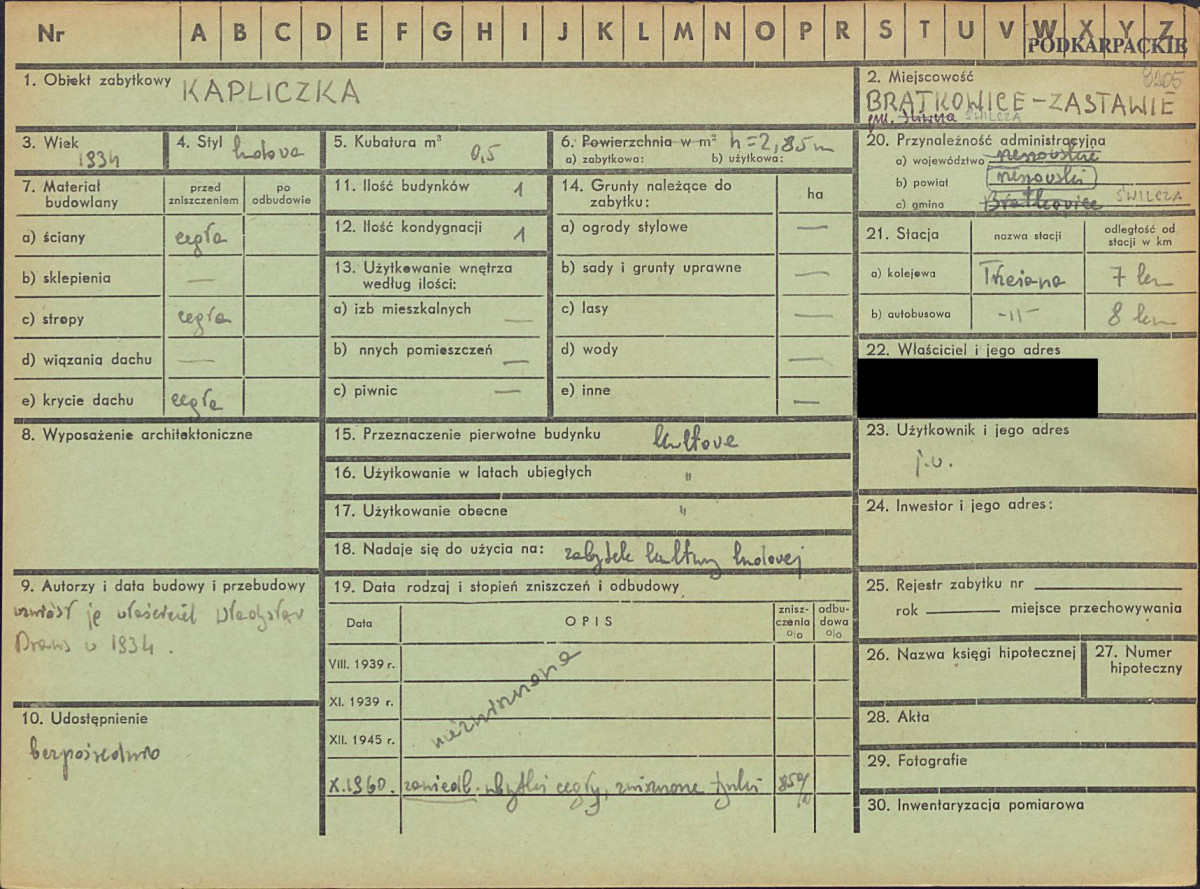 Nr A B C D E F G H I J K L M N O P R S T U V W X Y Z
PODKARPACKIE
9205
1. Obiekt zabytkowy KAPLICZKA
2. Miejscowość
BRATKOWICE-ZASTAWIE
gm. ŚWILCZA
3. Wiek 1934
4. Styl ludowa
5. Kubatura m³ 0,5
6. Powierzchnia w m² h=2,85m
a) zabytkowa: b) użytkowa:
7. Materiał budowlany
przed zniszczeniem
po odbudowie
a) ściany cegła
b) sklepienia —
c) stropy cegła
d) wiązania dachu —
e) krycie dachu cegła
8. Wyposażenie architektoniczne
9. Autorzy i data budowy i przebudowy
wzniósł ją właściciel Władysław
w 1934.
10. Udostępnienie
bezpośrednio
11. Ilość budynków 1
12. Ilość kondygnacji 1
13. Użytkowanie wnętrza
według ilości:
a) izb mieszkalnych —
b) nnych pomieszczeń —
c) piwnic —
14. Grunty należące do
zabytku:
ha
a) ogrody stylowe —
b) sady i grunty uprawne —
c) lasy —
d) wody —
e) inne —
15. Przeznaczenie pierwotne budynku kultowe
16. Użytkowanie w latach ubiegłych "
17. Użytkowanie obecne "
18. Nadaje się do użycia na: zabytek kultury ludowej
19. Data rodzaj i stopień zniszczeń i odbudowy
Data
OPIS
znisz-
czenia
%
odbu-
dowa
%
VIII. 1939 r.
XI. 1939 r.
XII. 1945 r.
niezniszczona
X.1960. zaniedb. ubytki cegły, zniszczone tynki 85%
20. Przynależność administracyjna
a) województwo rzeszowskie
b) powiat rzeszowski
c) gmina Bratkowice ŚWILCZA
21. Stacja
nazwa stacji
odległość od
stacji w km
a) kolejowa Trzciana 7 km
b) autobusowa -"- 8 km
22. Właściciel i jego adres
23. Użytkownik i jego adres
j.w.
24. Inwestor i jego adres:
25. Rejestr zabytku nr
rok miejsce przechowywania
26. Nazwa księgi hipotecznej
27. Numer
hipoteczny
28. Akta
29. Fotografie
30. Inwentaryzacja pomiarowa